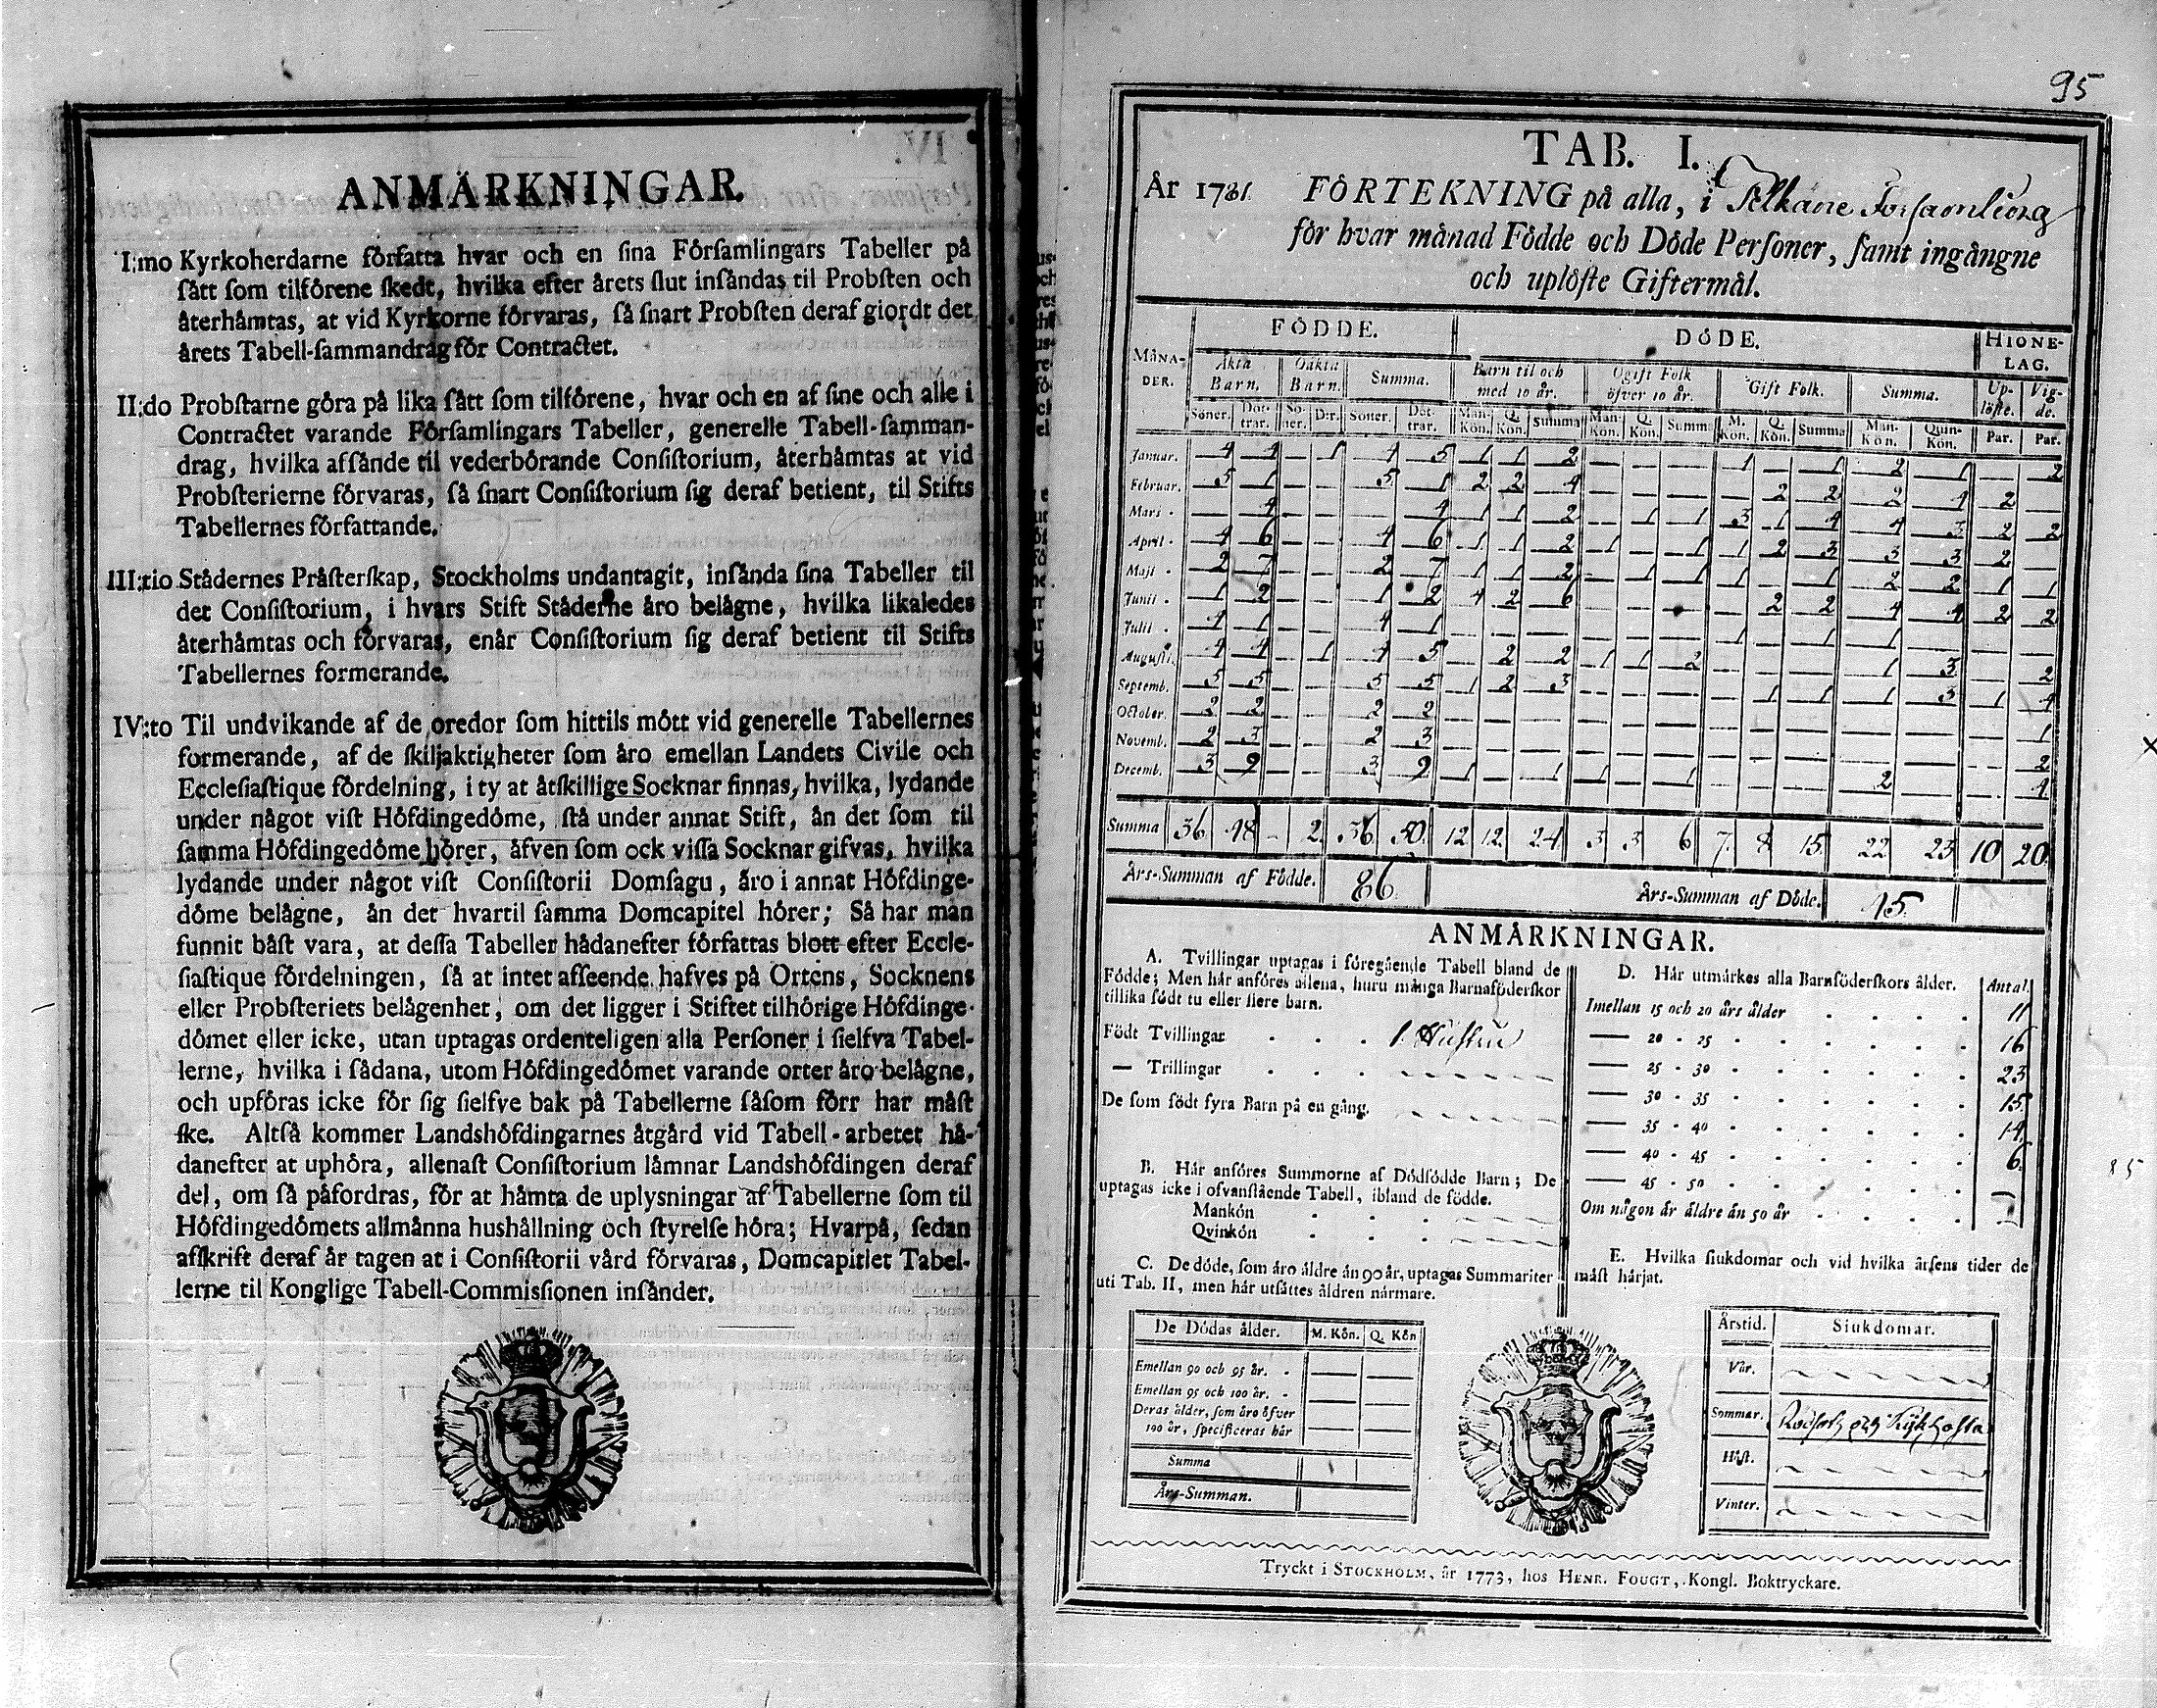 ANMÄRKNINGAR.
I:mo Kyrkoherdarne författa hvar och en sina Församlingars Tabeller på
sått som tilförene skedt, hvilka efter årets slut insåndas til Probsten och
återhåmtas, at vid Kyrkorne förvaras, så snart Probsten deraf giordt det
årets Tabell-sammandrag för Contractet.
II:do Probstarne göra på lika sått som tilförene, hvar och en af sine och alle i
Contractet varande Församlingars Tabeller, generelle Tabell-samman-
drag, hvilka afsånde til vederbörande Consistorium, återhåmtas at vid
Probsterierne förvaras, så snart Consistorium sig deraf betient, til Stifts
Tabellernes författande.
III:tio Stådernes Pråsterskap, Stockholms undantagit, insånda sina Tabeller til
det Consistorium, i hvars Stift Ståderne åro belågne, hvilka likaledes
återhåmtas och förvaras, enår Consistorium sig deraf betient til Stifts
Tabellernes formerande.
IV:to Til undvikande af de oredor som hittils mött vid generelle Tabellernes
formerande, af de skiljaktigheter som åro emellan Landets Civile och
Ecclesiastique fördelning, i ty at åtskillige Socknar finnas, hvilka, lydande
under något vist Höfdingedöme, stå under annat Stift, ån det som til
samma Höfdingedöme hörer, åfven som ock vissa Socknar gifvas, hvilka
lydande under något vist Consistorii Domsagu, åro i annat Höfdinge-
döme belågne, ån det hvartil samma Domcapitel hörer; Så har man
funnit båst vara, at dessa Tabeller hådanefter författas blott efter Eccle-
siastique fördelningen, så at intet afseende hafves på Ortens, Socknens
eller Probsteriets belågenhet, om det ligger i Stiftet tilhörige Höfdinge-
dömet eller icke, utan uptagas ordenteligen alla Personer i sielfva Tabel-
lerne, hvilka i sådana, utom Höfdingedömet varande orter åro belågne,
och upföras icke för sig sielfve bak på Tabellerne såsom förr har måst
ske. Altså kommer Landshöfdingarnes åtgård vid Tabell-arbetet hå-
danefter at uphöra, allenast Consistorium låmnar Landshöfdingen deraf
del, om så påfordras, för at håmta de uplysningar af Tabellerne som til
Höfdingedömets allmånna hushållning och styrelse höra; Hvarpå, sedan
afskrift deraf år tagen at i Consistorii vård förvaras, Domcapitlet Tabel-
lerne til Konglige Tabell-Commissionen insånder.
95
TAB. I.
År 1781. FÖRTEKNING på alla, i Församling
för hvar månad Födde och Döde Personer, samt ingångne
och uplöste Giftermål.
MÅNA-DER. FÖDDE. DÖDE. HIONE-LAG.
Äkta Barn. Oäkta Barn. Summa. Barn til och med 10 år. Ogift Folk öfver 10 år. Gift Folk. Summa. Up-löste. Vig-de.
Söner. Döt-trar. Sö-ner. D:r. Söner. Döt-trar. Man-Kön. Q. Kön. Summa Man-Kön. Q. Kön. Summa M. Kön. Q. Kön. Summa Man-Kön. Quin-Kön. Par. Par.
Januar. 4 4 — 1 4 5 1 1 2 — — — 1 — 1 2 1 — 2
Februar. 5 1 — — 5 1 2 2 4 — — — — 2 2 2 4 2 —
Mart. — 4 — — — 4 1 1 2 — 1 1 3 1 4 4 3 2 2
April. 4 6 — — 4 6 1 1 2 1 — 1 1 2 3 3 3 2 —
Maji. 2 7 — — 2 7 1 1 2 — 1 1 1 — 1 2 2 1 1
Junii. 1 2 — — 1 2 4 2 6 — — — — 2 2 4 4 2 2
Julii. 4 1 — — 4 1 — — — — — — 1 — 1 1 — — —
Augusti. 4 4 — 1 4 5 — 2 2 1 1 2 — — — 1 3 — 2
Septemb. 5 5 — — 5 5 1 2 3 — — — — 1 1 1 3 1 4
October. 2 2 — — 2 2 — — — — — — — — — — — — 1
Novemb. 2 3 — — 2 3 — — — — — — — — — — — — 2
Decemb. 3 9 — — 3 9 1 — 1 1 — 1 — — — 2 — — 4
Summa 36 48 - 2 36 50 12 12 24 3 3 6 7 8 15 22 23 10 20
Års-Summan af Födde. 86. Års-Summan af Döde. 45.
ANMÄRKNINGAR.
A. Tvillingar uptagas i föregående Tabell bland de
Födde; Men här anföres allena, huru många Barnaföderskor
tillika födt tu eller flere barn.
Födt Tvillingar . . . 1. Hustru
— Trillingar . . .
De som födt fyra Barn på en gång.
B. Här anföres Summorne af Dödfödde Barn; De
uptagas icke i ofvanstående Tabell, ibland de födde.
Mankön . . .
Qvinkön . . .
C. De döde, som äro äldre än 90 år, uptagas Summariter
uti Tab. II, men här utsättes åldren närmare.
De Dödas ålder. M. Kön. Q. Kön
Emellan 90 och 95 år. - — —
Emellan 95 och 100 år. - — —
Deras ålder, som äro öfver
100 år, specificeras här — —
Summa
Års-Summan.
D. Här utmärkes alla Barnföderskors ålder. Antal.
Imellan 15 och 20 års ålder 11
— 20 - 25 16
— 25 - 30 23
— 30 - 35 15
— 35 - 40 14
— 40 - 45 6
— 45 - 50 —
Om någon är äldre än 50 år —
85
E. Hvilka siukdomar och vid hvilka årsens tider de
mäst härjat.
Årstid. Siukdomar.
Vår.
Sommar. Rödsot och Kikhosta
Häst.
Vinter.
Tryckt i STOCKHOLM, år 1773, hos HENR. FOUGT, Kongl. Boktryckare.